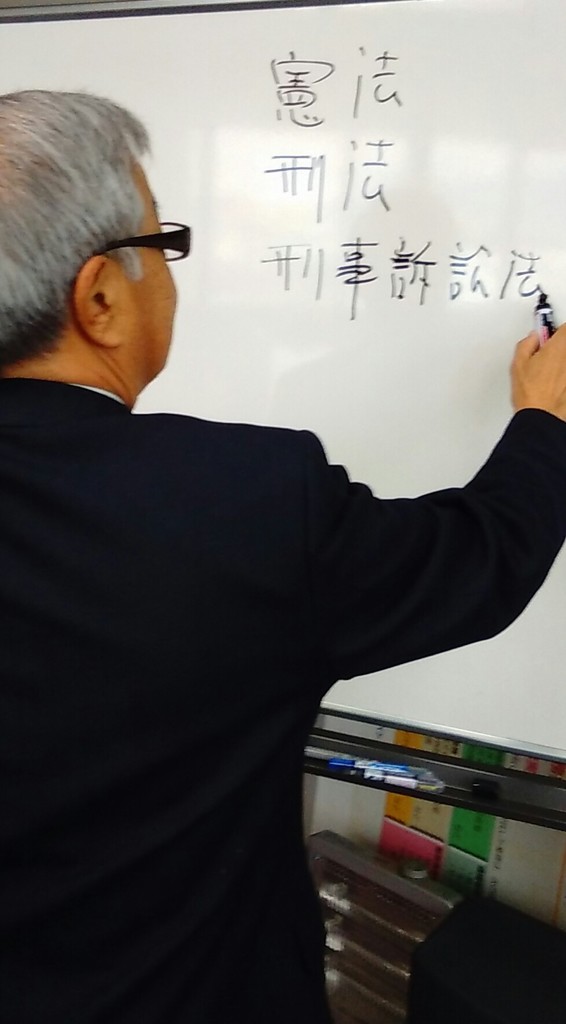 憲法
刑法
刑事訴訟法